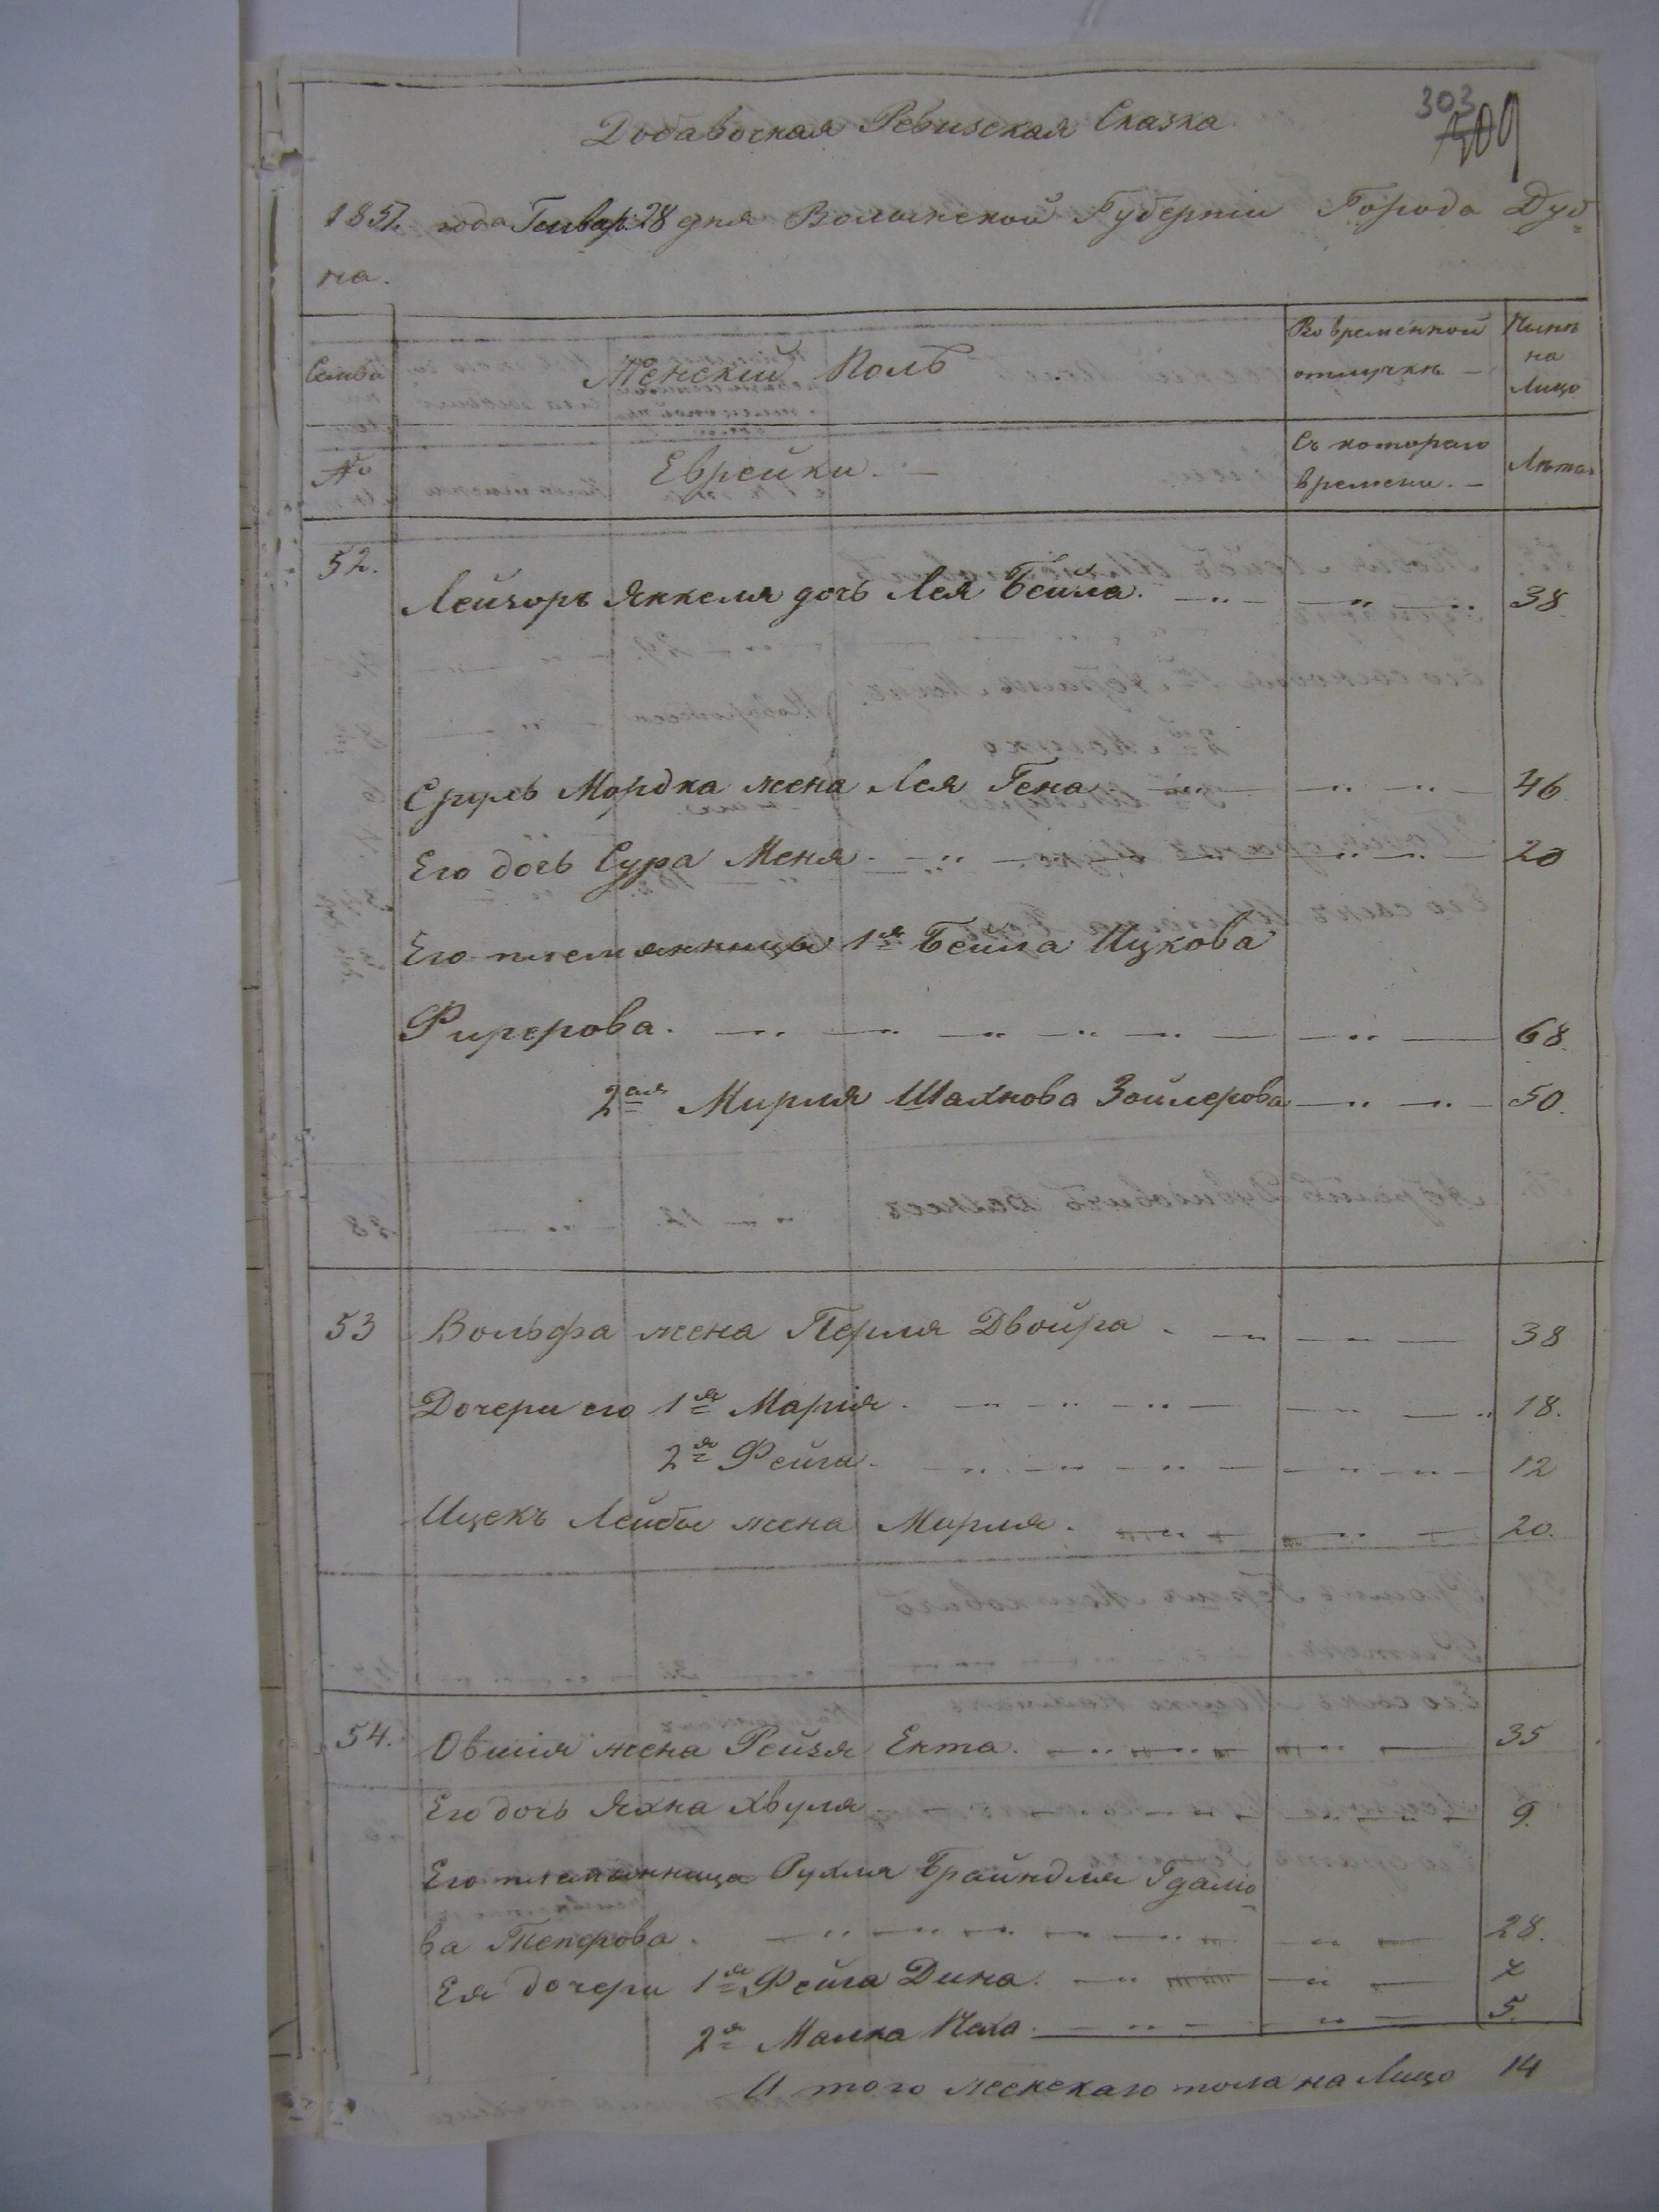 303
409
Добавочная Ревизская Сказка
1851 года Генвар: 28 дня Волынской Губерніи Города Дуб=
на.
Семьи
Женскій Полъ
Во временной отлучкѣ —
Нынѣ на Лицо
№
Еврейки. —
Съ котораго времени. —
Лѣта
52.
Лейзоръ Янкеля дочь Лея Бейла. 38.
Сруль Мордка жена Лея Гена 46
Его дочь Сура Меня. 20
Его племянницы 1я Бейла Ицкова
Фирерова. 68.
2ая Мирля Шахнова Зойлерова 50.
53 Вольфа жена Перля Двойра. 38
Дочери его 1я Марія. 18.
2я Фейга. 12
Ицекъ Лейбы жена Мирля. 20.
54. Овшія жена Рейзя Ента. 35
Его дочь Яхна Хвуля 9.
Его племянница Рухля Брайндля Гдаліо
ва Теперова. 28.
Ея дочери 1я Фейга Дина. 7
2я Малка Неха. 5.
И того женскаго пола на Лицо 14